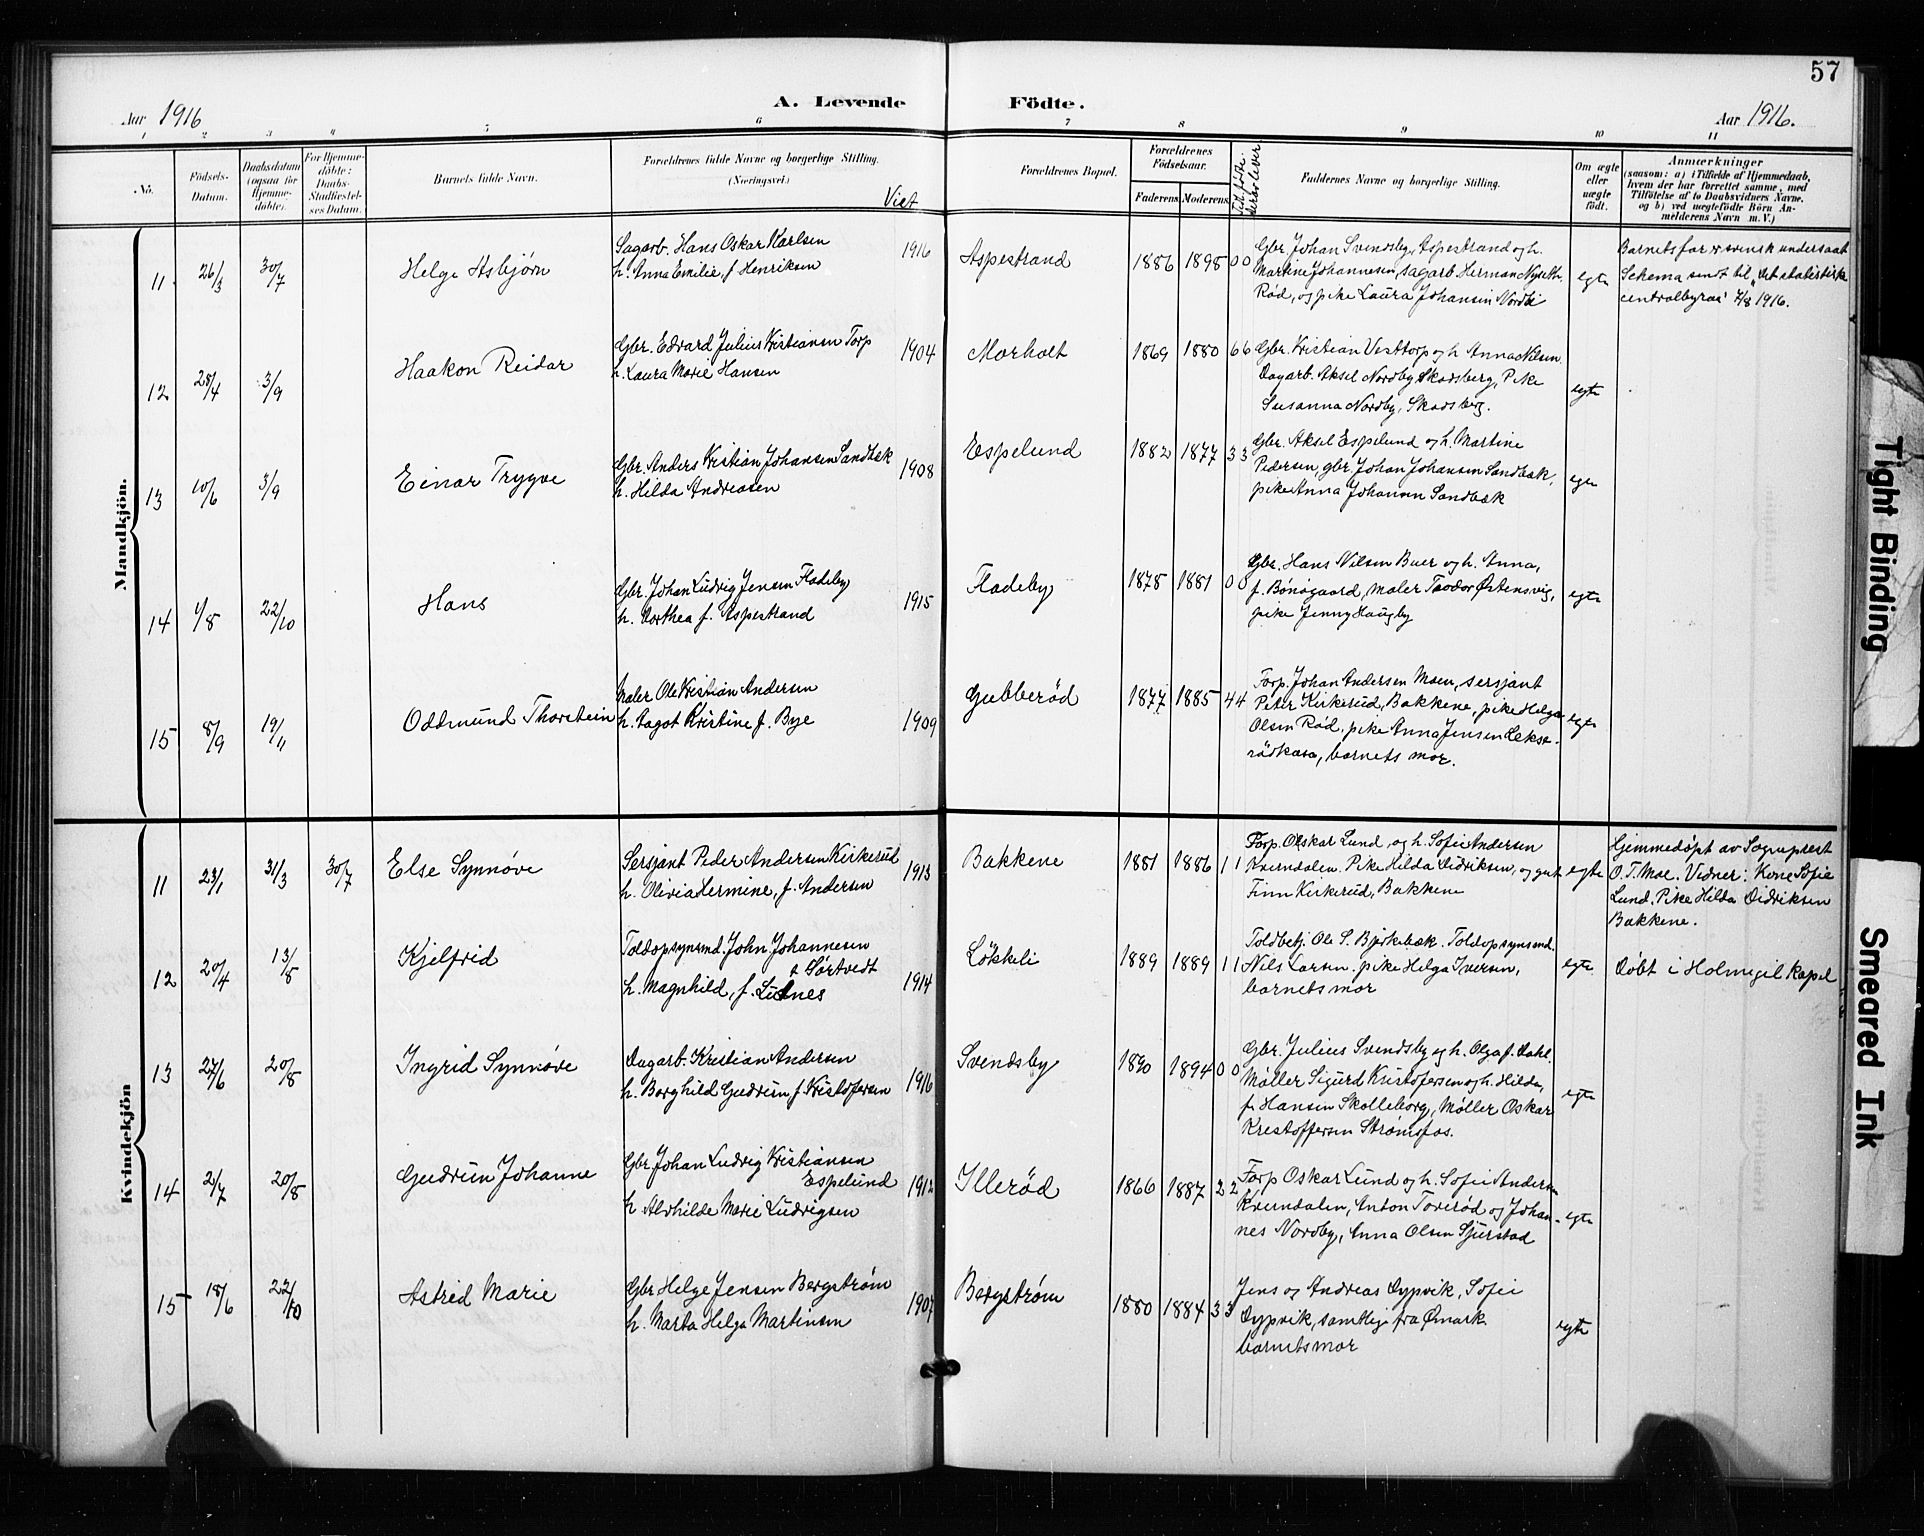 57
A. Levende Födte.
Aar 1916
Aar 1916.
1 2 3 4 5 6 7 8 9 10 11
No.
Födsels-Datum.
Daabsdatum (ogsaa for Hjemme-döbte).
For Hjemme-döbte: Daabs-Stadfæstel-ses Datum.
Barnets fulde Navn.
Forældrenes fulde Navne og borgerlige Stilling.
(Næringsvei.)
Viet
Forældrenes Bopæl.
Forældrenes Födselsaar.
Faderens Moderens
Faddernes Navne og borgerlige Stilling.
Om ægte eller uægte født.
Anmærkninger
(saasom: a) i Tilfælde af Hjemmedaab,
hvem der har forrettet samme, med
Tilföielse af to Daabsvidners Navne.
og b) ved uægtefödte Börn An-
melderens Navn m. V.)
Mandkjön.
11 26/3 30/7 Helge Asbjørn
Sagarb. Hans Oskar Karlsen
h. Anna Emilie, f. Henriksen
1916 Aspestrand 1886 1895 0 0
Gbr. Johan Svendsby, Aspestrand og h.
Martine Johannesen, sagarb. Herman Nyseth,
Rød, og pike Laura Johansen Nordbi
egte
Barnets far er svensk undersaat
Schema sendt til "det statistiske
centralbyraa" 7/8 1916.
12 28/4 3/9 Haakon Reidar
Gbr. Edvard Julius Kristiansen Torp
h. Laura Marie Hansen
1904 Morholt 1869 1880 6 6
Gbr. Kristian Vesttorp og h. Anna Nilsen.
Dagarb. Aksel Nordby Skodsberg, Pike
Susanna Nordby, Skodsberg.
egte
13 10/6 3/9 Einar Trygve
Gbr. Anders Kristian Johansen Sandbæk
h. Hilda Andreasen
1908 Espelund 1882 1877 3 3
Gbr. Aksel Espelund og h. Martine
Pedersen, gbr. Johan Johansen Sandbæk,
pike Anna Johansen Sandbæk
egte
14 1/8 22/10 Hans
Gbr. Johan Ludvig Jensen Fladeby
h. Dorthea f. Aspestrand
1915 Fladeby 1878 1881 0 0
Gbr. Hans Nilsen Buer og h. Anna,
f. Bønsgaard, maler Teodor Østensvig,
pike Jenny Haugby
egte
15 8/9 19/11 Oddmund Thorstein
Maler Ole Kristian Andersen
h. Dagot Kristine f. Bye
1909 Gubberød 1877 1885 4 4
Forp. Johan Andersen Moen, sersjant
Peter Kirkerud, Bakkene, pike Helga
Olsen Rød, pike Anna Jensen Lekse-
rødkasa, barnets mor.
egte
Kvindekjön
11 23/1 31/3 30/7 Else Synnøve
Sersjant Peder Andersen Kirkerud
h. Olivia Hermine, f. Andersen
1913 Bakkene 1881 1886 1 1
Forp. Oskar Lund, og h. Sofie Andersen
Kverndalen. Pike Hilda Didriksen, og gut
Finn Kirkerud, Bakkene
egte
Hjemmedøpt av Sogneprest
O. T. Moe. Vidner: Kone Sofie
Lund. Pike Hilda Didriksen
Bakkene.
12 20/4 13/8 Kjelfrid
Toldopsynsmd. John Johannesen
Sørtvedt
h. Magnhild, f. Lutnes
1914 Løkkeli 1889 1889 1 1
Toldbetj. Ole S. Bjerkebæk. Toldopsynsmd.
Nils Larsen. pike Helga Iversen,
barnets mor
egte
Døbt i Holmegil Kapel
13 27/6 20/8 Ingrid Synnøve
Dagarb. Kristian Andersen
h. Borghild Gudrun f. Kristofersen
1916 Svendsby 1890 1894 0 0
Gbr. Julius Svendsby og h. Olga f. Dahl.
Møller Sigurd Kristofersen og h. Hilda,
f. Hansen Skolleborg, Møller Oskar
Kristoffersen Strømsfos.
egte
14 2/7 20/8 Gudrun Johanne
Gbr. Johan Ludvig Kristiansen
Espelund
h. Alvhilde Marie Ludvigsen
1912 Illerød 1866 1887 2 2
Forp Oskar Lund og h. Sofie Andersen
Kverndalen, Anton Toverød og Johan-
nes Nordby, Anna Olsen Sjurstad
egte
15 18/6 22/10 Astrid Marie
Gbr. Helge Jensen Bergstrøm
h. Marta Helga Martinsen
1907 Bergstrøm 1880 1884 3 3
Jens og Andreas Dypvik, Sofie
Dypvik, samtlige fra Ømark
barnets mor
egte
Tight Binding
Smeared Ink